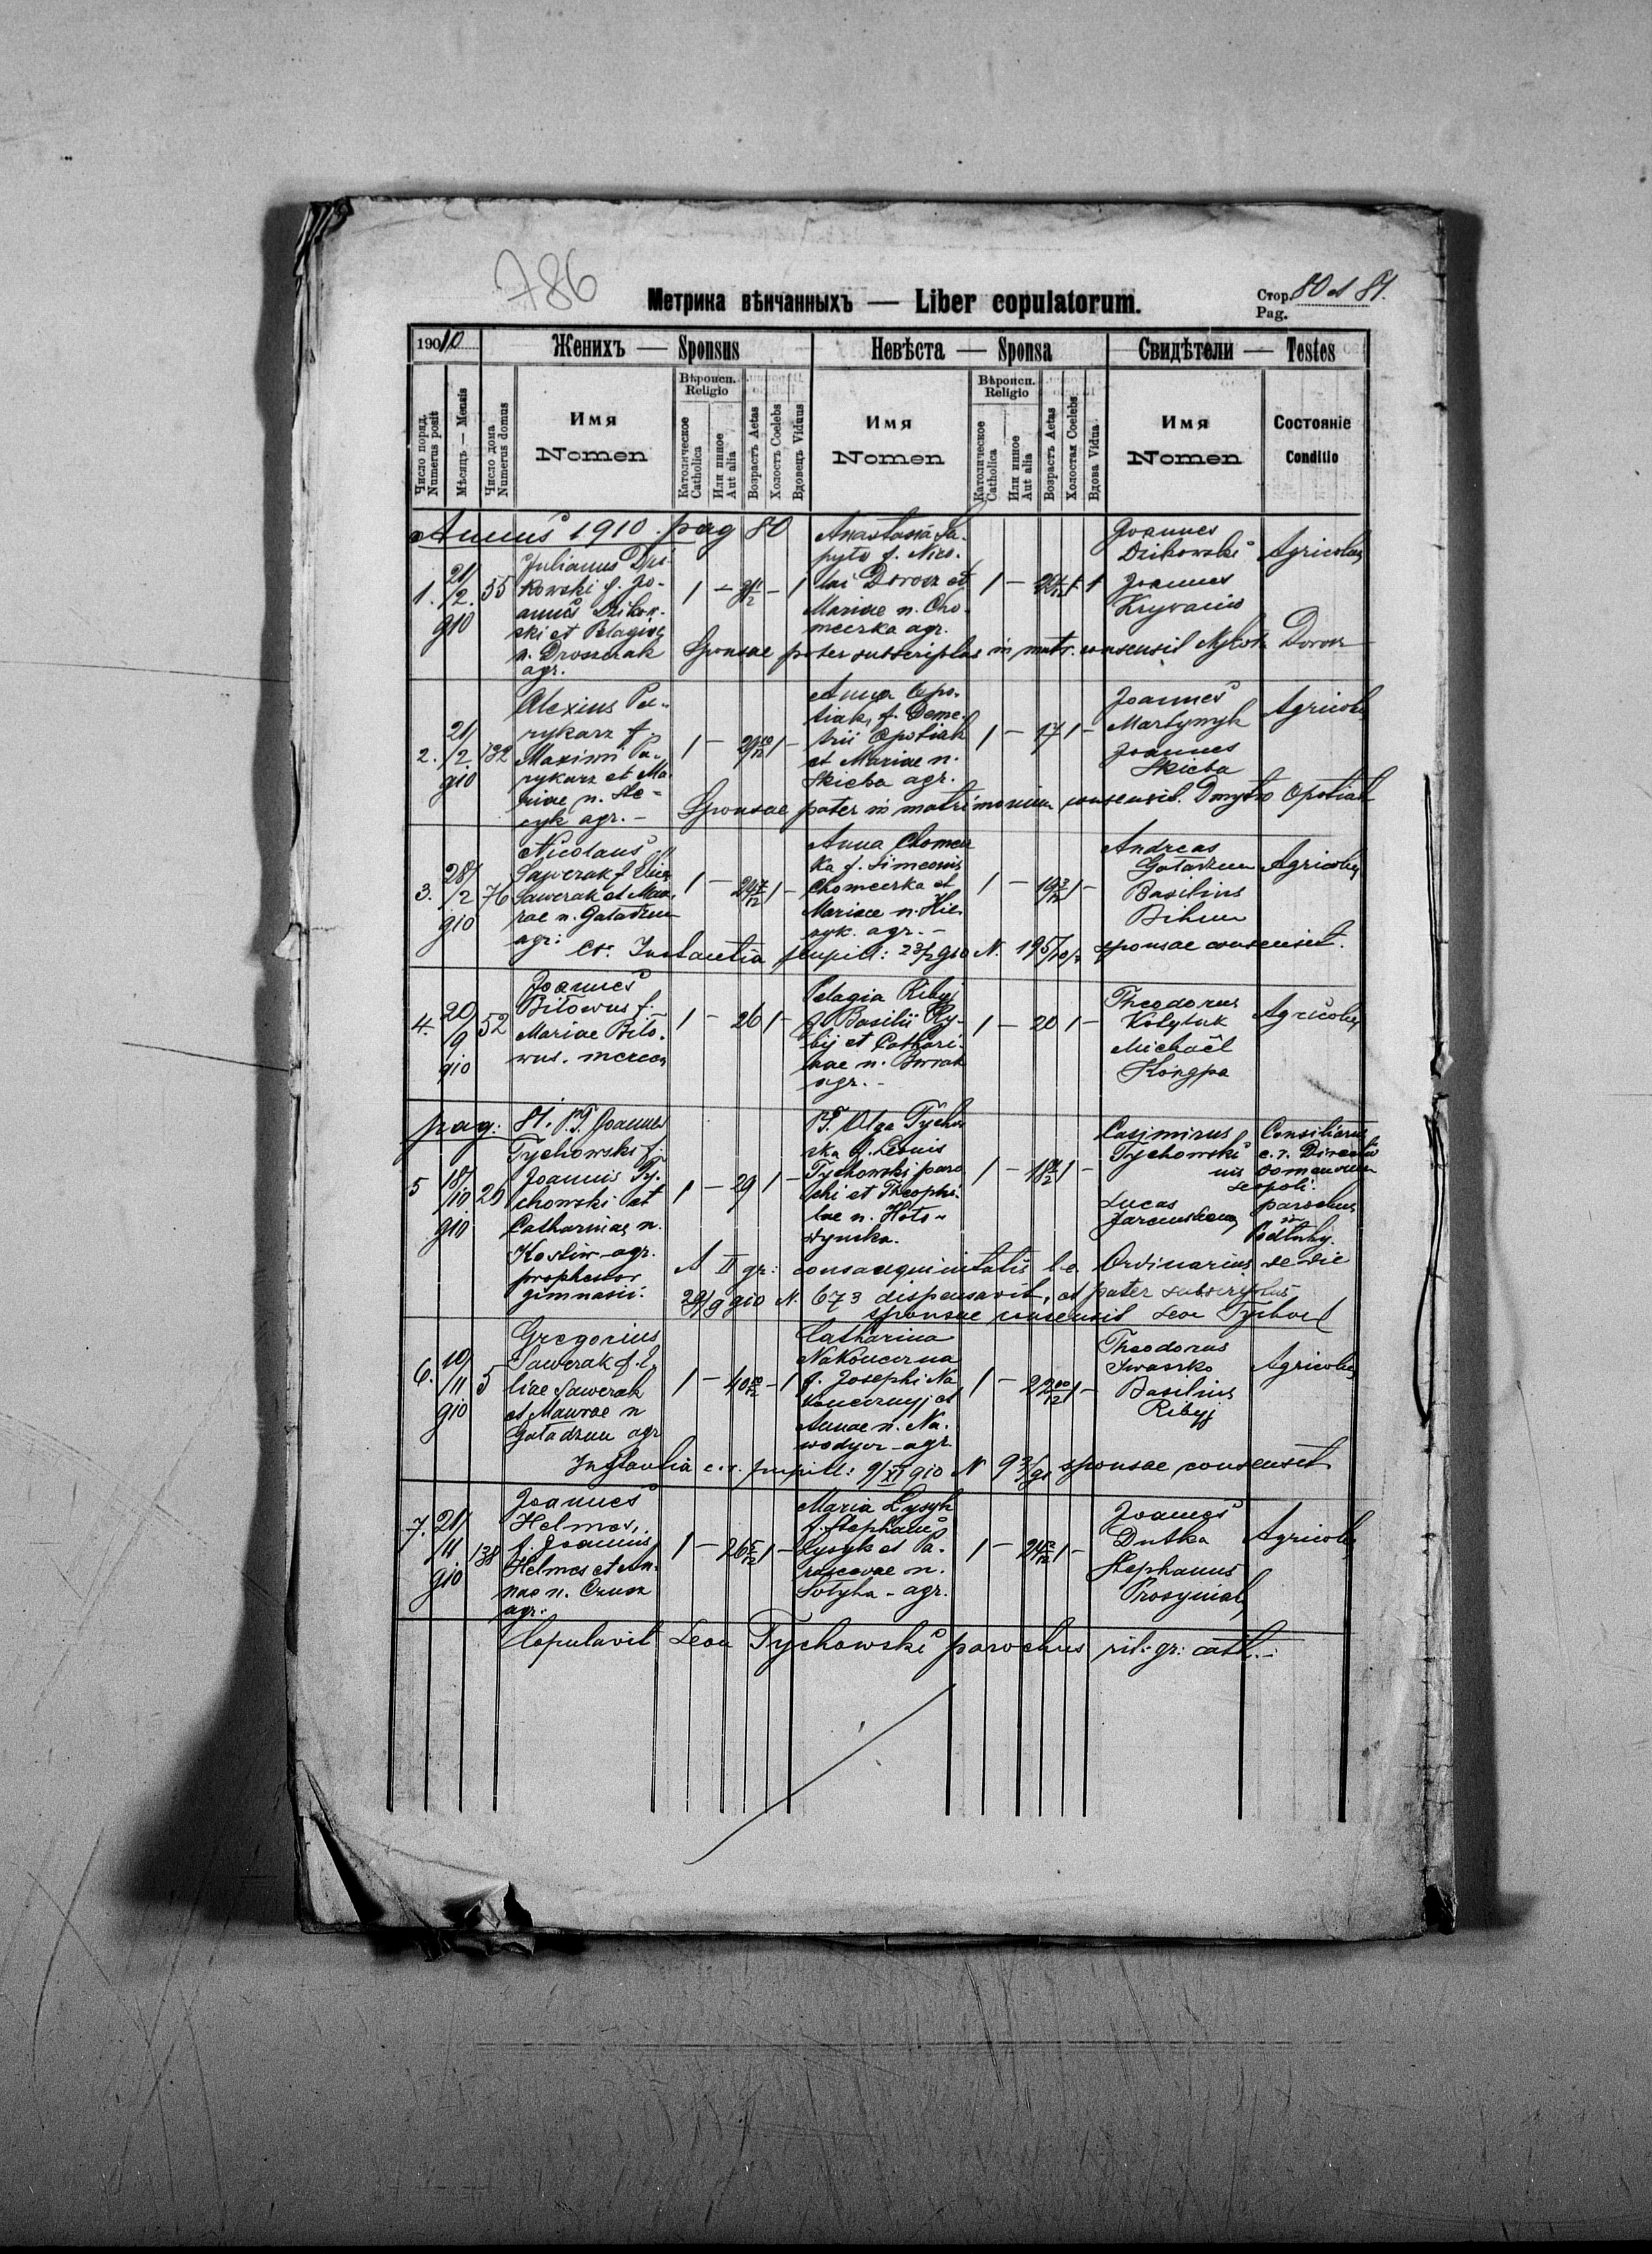 786
Метрика вѣнчанныхъ — Liber copulatorum.
Стор. 80 et 81.
Pag.
1910
Женихъ — Sponsus
Невѣста — Sponsa
Свидѣтели — Testes
Число поряд. Numerus posit
Мѣсяцъ — Mensis
Число дома Numerus domus
Имя
Nomen
Вѣроисп.
Religio
Католическое Catholica
Или инное Aut alia
Возрастъ Aetas
Холостъ Coelebs
Вдовецъ Viduus
Имя
Nomen
Вѣроисп.
Religio
Католическое Catholica
Или инное Aut alia
Возрастъ Aetas
Холостая Coelebs
Вдова Vidua
Имя
Nomen
Состояніе
Conditio
Annus 1910 pag 80
1.
21/2. 910
55
Julianus
kowski f. Jo-
annis
ski et Pelagiae
n. Droszczak
agr.
1 —
— 1
Anastasia Sa-
pyta f. Nico-
lai Dorosz et
Mariae n. Cho-
meczka agr.
1 —
Joannes
Joannes
Agricolae
Sponsae pater subscriptus in matr. consensit Mykoła Dorosz
2.
21/2 910
132
Alexius Pa-
rykarz f.
Maximi Pa-
rykarz et Ma-
riae n.
cyk agr. —
1 —
1 —
Anna Opo-
tiak, f. Deme-
trii Opotiak
et Mariae n.
Skieba agr.
1 — 17 1 —
Joannes
Martynyk
Joannes
Skieba
Agricolae
Sponsae pater in matrimonium consensit. Dmytro Opotiak
3.
28/2 910
76
Nicolaus
Sawczak f. Eliae
Sawczak et Mau-
rae n. Gaładzun
agr:
1 — 24 7/12 1 —
Anna Chomecz
ka f. Simeonis
Chomeczka et
Mariae n.
agr. —
1 —
1 —
Andreas
Gaładzun
Basilius
Bihun
Agricolae
Instantia pupill: 23/2 910 N. sponsae consensit.
4.
20/9 910
52
Joannes
Biłowus f.
Mariae Biło-
wus.
1 — 26 1 —
Pelagia Ribyj
f. Basilii Ry-
byj et Cathari-
nae n.
agr. —
1 — 20 1 —
Theodorus
Kołytak
Michaël
Agricolae
pag: 81.
5
18/10 910
29
P.T. Joannes
Tychowski f.
Joannis Ty-
chowski et
Catharinae n.
Kostiw agr.
prophessor
gimnasii.
1 — 29 1 —
P.T. Olga Tychow
ska f. Leonis
Tychowski paro
chi et Theophi-
lae n. Hoło-
wynska.
1 —
1 —
Casimirus
Tychowski
Lucas
Consiliarius
c. r. Directio
nis
Leopoli.
parochus
in
A II gr: consanquinitatis l.c. Ordinarius de die
29/9 910 N. 673 dispensavit, et pater subscriptus
sponsae consensit Leon
6.
10/11 910
5
Gregorius
Sawczak f. E-
liae Sawczak
et Maurae n
Gaładzun agr
1 —
— 1
Catharina
Nakonczna
f. Josephi Na
koncznyj et
Annae n. Na-
agr.
1 —
1 —
Theodorus
Iwaszko
Basilius
Ribyj
Agricolae
Instantia c. r. pupill: 9/XI 910 N sponsae consensit
7.
21/11 910
138
Joannes
Helmes,
f. Joannis
Helmes et An-
nae n.
agr.
1 — 26 5/12 1 —
Maria Łysyk
f. Stephani
Łysyk et Pa-
rascevae n.
agr.
1 —
1 —
Joannes
Dutka
Stephanus
Agricolae
Copulavit Leon Tychowski parochus rit: gr: cath. —